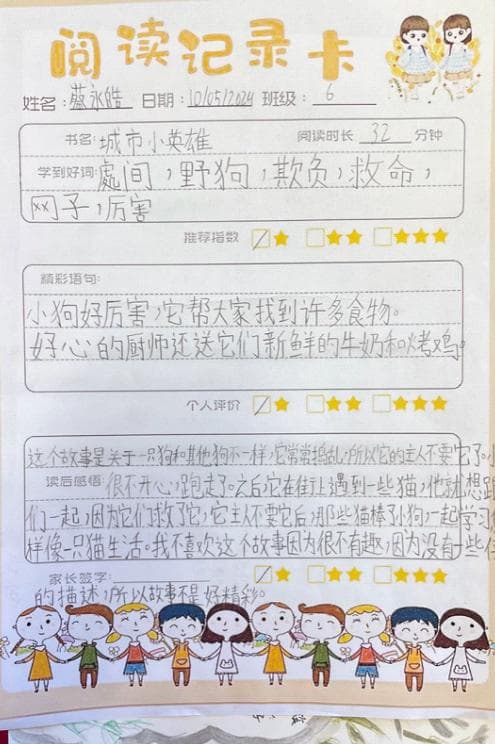 阅读记录卡
姓名：蓝永皓 日期：10/05/2024 班级：6
书名：城市小英雄 阅读时长 32 分钟
学到好词：處间，野狗，欺负，救命，
网子，厉害
推荐指数
精彩语句：
小狗好厉害，它帮大家找到许多食物。
好心的厨师还送它们新鲜的牛奶和烤鸡。
个人评价
这个故事是关于一只狗和其他狗不一样，它常常捣乱，所以它的主人不要它了。小
读后感悟：很不开心，跑走了。之后它在街上遇到一些猫，他就想跟
们一起，因为它们救了它，它主人不要它后，那些猫棒了小狗，一起学习
样像一只猫生活。我不喜欢这个故事因为很不有趣，因为没有一些
家长签字：
的描述，所以故事不是好精彩。